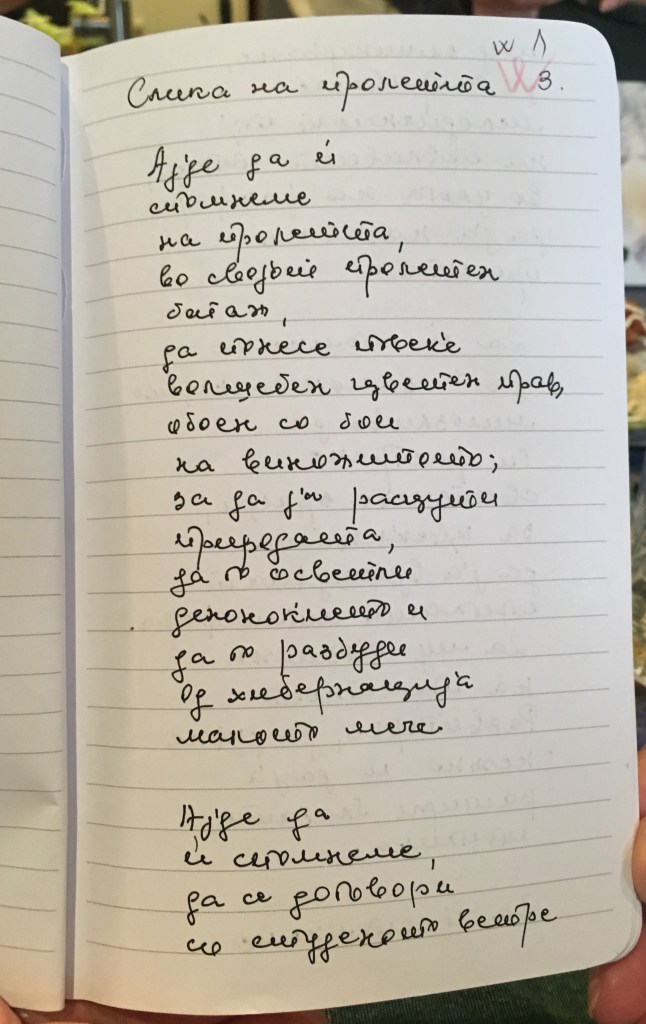 w Л
Слика на пролетта W 3.
Ајде да ѝ
спомнеме
на пролетта,
во својот пролетен
багаж,
да понесе повеќе
волшебен цветен прав,
обоен со бои
на виножитото;
за да ја расцути
природата,
да го осветли
деноноќието и
да го разбуди
од хибернација
малото мече.
Ајде да
ѝ спомнеме,
да се договори
со студеното ветре